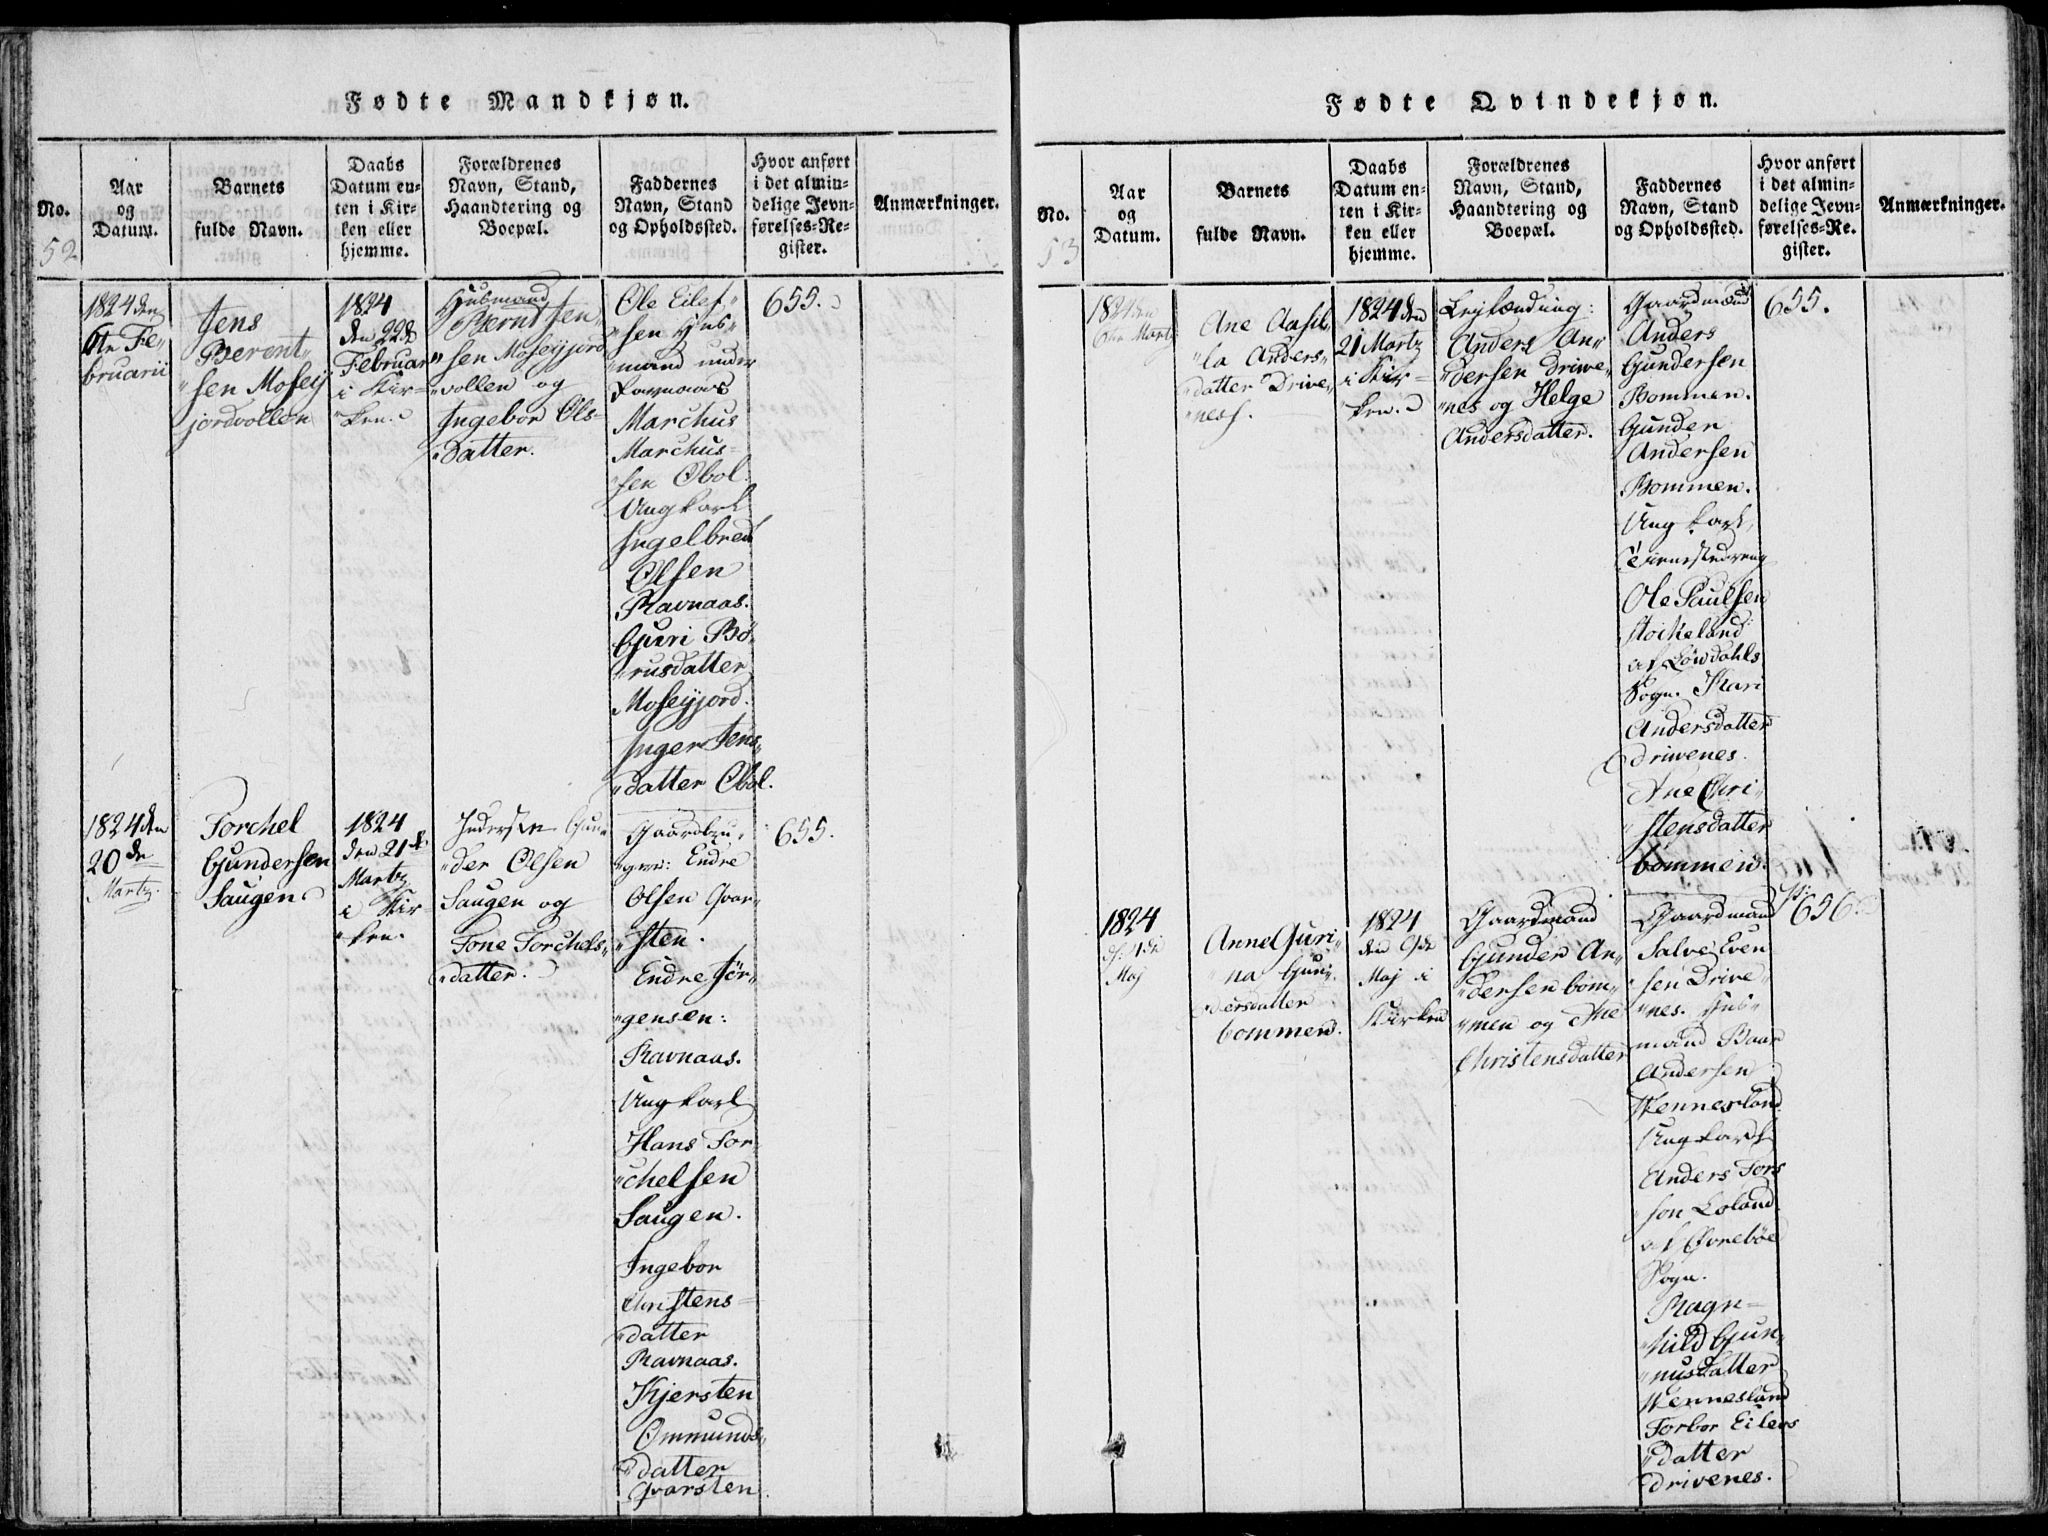 Fødte Mandkjøn.
No.
52
Aar
og
Datum.
Barnets
fulde Navn.
Daabs
Datum en-
ten i Kir-
ken eller
hjemme.
Forældrenes
Navn, Stand,
Haandtering og
Boepæl.
Faddernes
Navn, Stand
og Opholdssted.
Hvor anført
i det almin-
delige Jevn-
førelses-Re-
gister.
Anmærkninger.
1824 den
6te Fe-
bruarii
Jens
Berent-
"sen Moseij
jordvollen
1824
den 22de
Februar
i Kir=
"ken.
Huusmand
Bernt Jen-
"sen Moseyjord
"vollen og
Ingebor Ols-
"datter.
Ole Eilef-
"sen Hus-
"mand under
Ravnaas
Marchus
Marchus-
sen Obol.
Ungkarl
Ingelbret
Olsen
Ravnaas.
Guri Bö-
"rusdatter
Moseyjord.
Inger Jens-
"datter Obol.
655.
1824 den
20de
Martz.
Torchel
Gundersen
Saugen
1824
den 21de
Martz
i Kir-
"ken.
Inderste Gun-
"der Olsen
Saugen og
Tone Torchels-
"datter.
Gaardbru-
"ger: Endre
Olsen Qvar-
"sten.
Endre Jör-
"gensen:
Ravnaas.
Ungkarl
Hans Tor-
"chelsen
Saugen.
Ingebor
Christens=
"datter
Ravnaas.
Kjersten
Ommunds-
"datter
Qvarsten.
655.
Fødte Qvindekjøn.
No.
53
Aar
og
Datum.
Barnets
fulde Navn.
Daabs
Datum en-
ten i Kir-
ken eller
hjemme.
Forældrenes
Navn, Stand,
Haandtering og
Boepæl.
Faddernes
Navn, Stand
og Opholdssted.
Hvor anført
i det almin-
delige Jevn-
førelses-Re-
gister.
Anmærkninger.
1824 den
6te Martz
Ane Aasil-
"la Anders-
"datter Drive-
"ness.
1824 den
21 Martz
i Kir=
"ken.
Lejlænding:
Anders An-
"dersen Driwe-
"nes og Helge
Andersdatter.
Gaardmænd
Anders
Gundersen
Bommen.
Gunder
Andersen
Bommen.
Ung karl,
Ole Paulsen
Stockeland
af Löwdahls
Sogn. Kari
Andersdatter
Driwenes.
Ane Chri-
"stensdatter
bommen.
655.
1824
d. 4de
Maj
Anne Guri-
"na Gun-
"dersdatter
bommen.
1824
den 9de
Maj i
Kirken
Gaardmand
Gunder An-
"dersen bom-
"men og Ane
Christensdatter
Gaardmand
Salve Even
"sen Drive-
"nes. Hus-
mand Baar
Andersen
Wennesland
Ungkarl
Anders Tors
son Loland
af Øvrebøe
Sogn.
Ragn=
"hild Gun-
"nusdatter
Wennesland
Torbor Eilevs
"datter
Drivenes.
656.